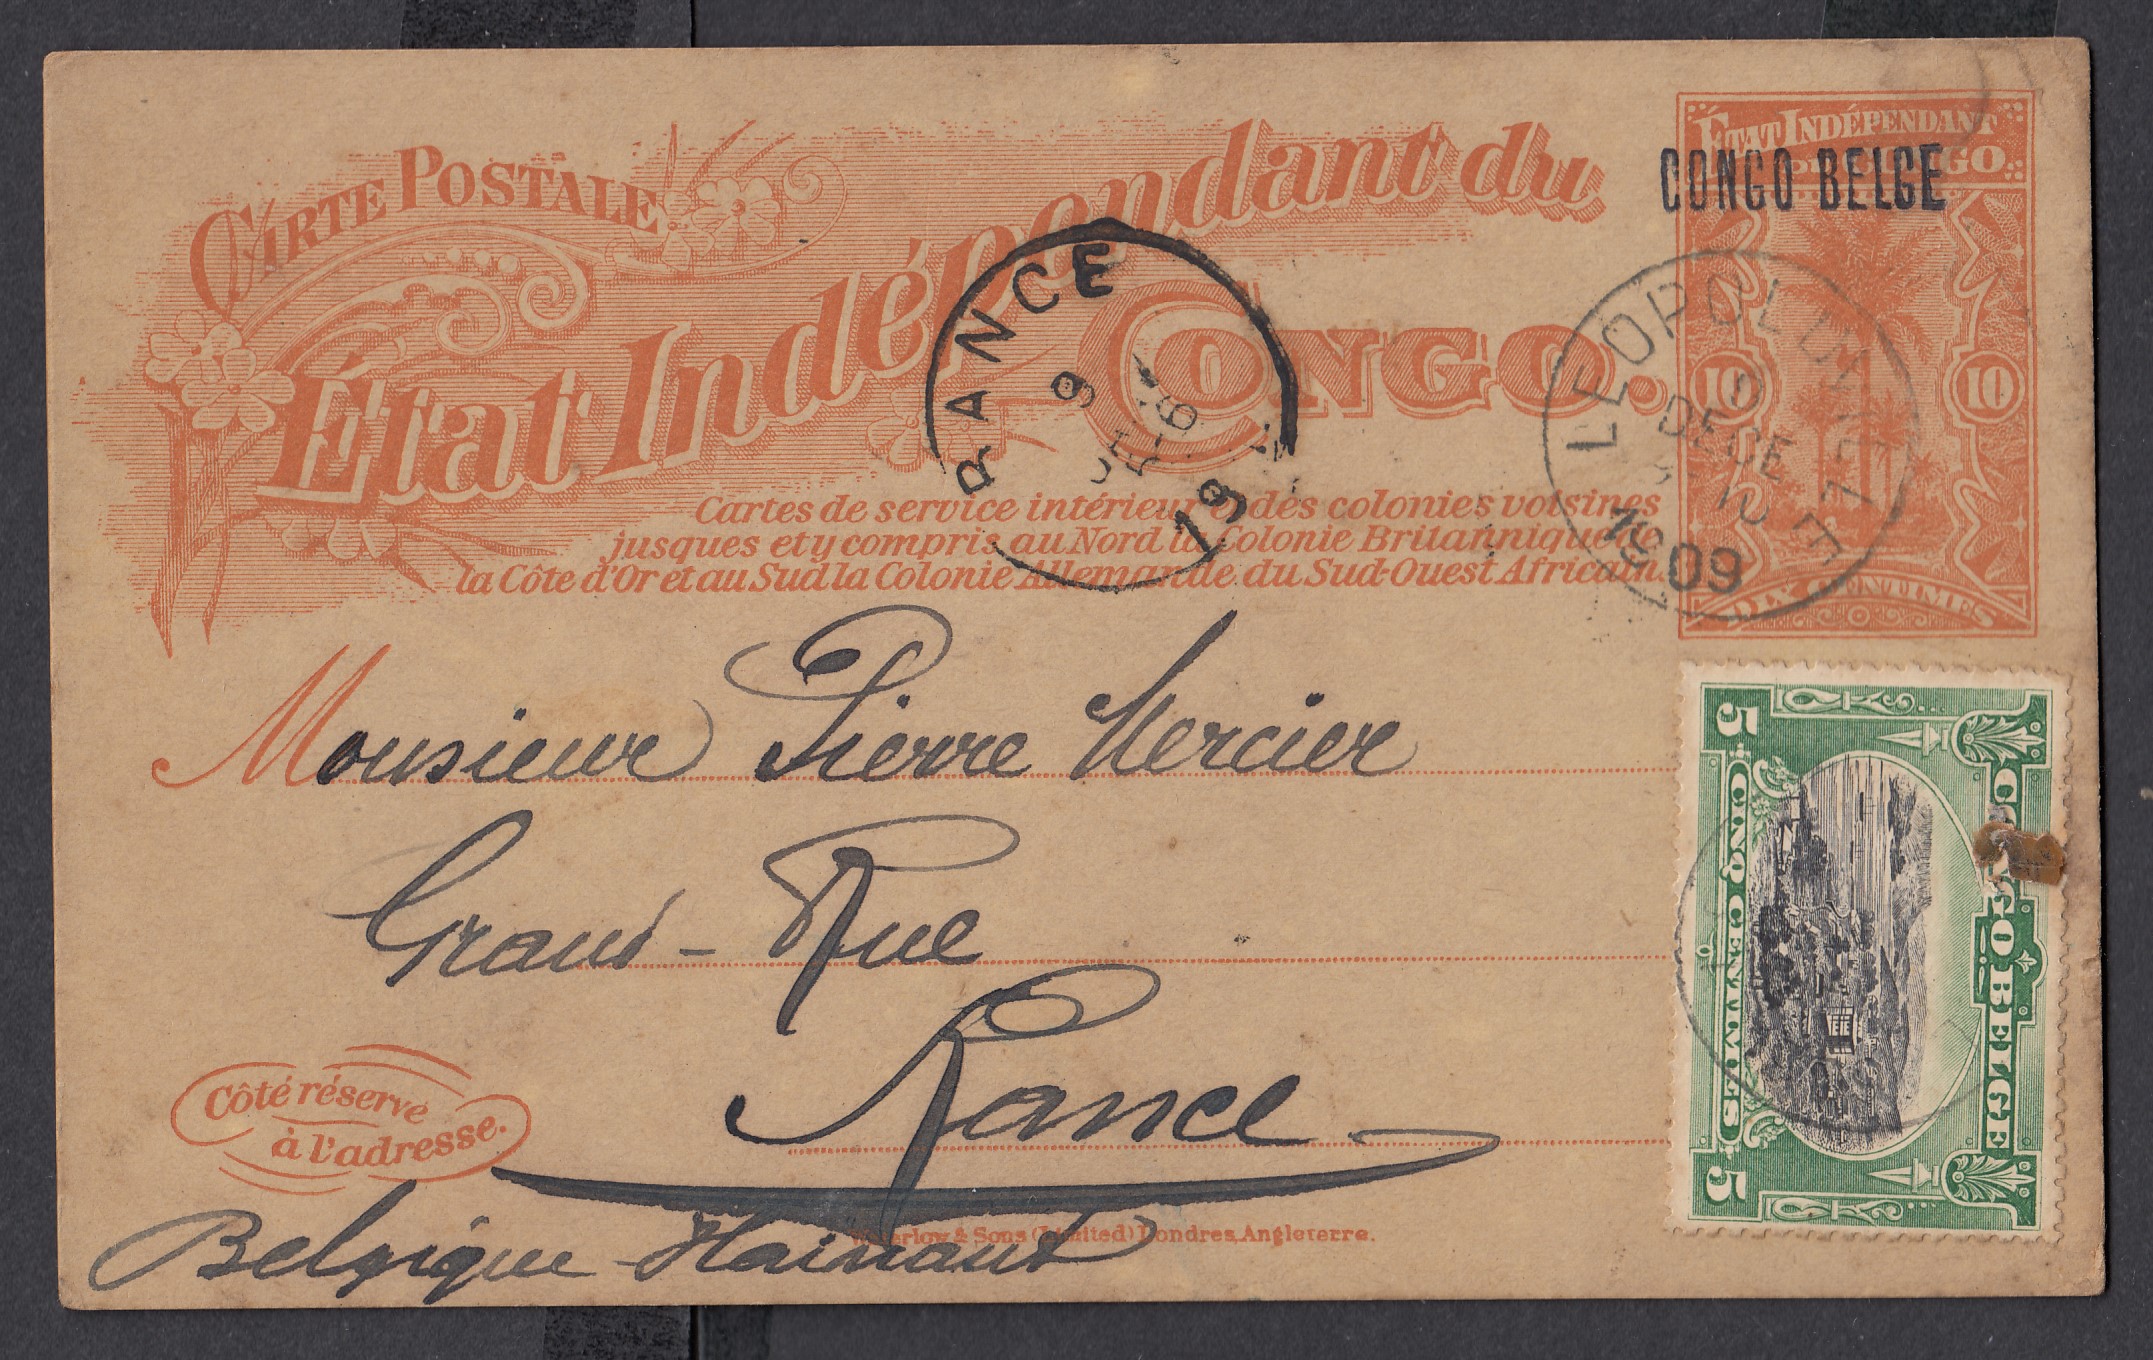 CARTE POSTALE
État Indépendant du
CONGO.
Cartes de service intérieur et des colonies voisines
jusques et y compris au Nord la Colonie Britannique de
la Côte d'Or et au Sud la Colonie Allemande du Sud-Ouest Africain.
ÉTAT INDÉPENDANT
DU CONGO
CONGO BELGE
10 10
DIX CENTIMES
RANCE
9
19
LEOPOLDVILLE
DECE
1909
Monsieur Pierre Mercier
Grand-Rue
Rance
Côté réservé
à l'adresse.
Belgique Hainaut
Waterlow & Sons (Limited) Londres, Angleterre.
CONGO BELGE
5 5
CINQ CENTIMES